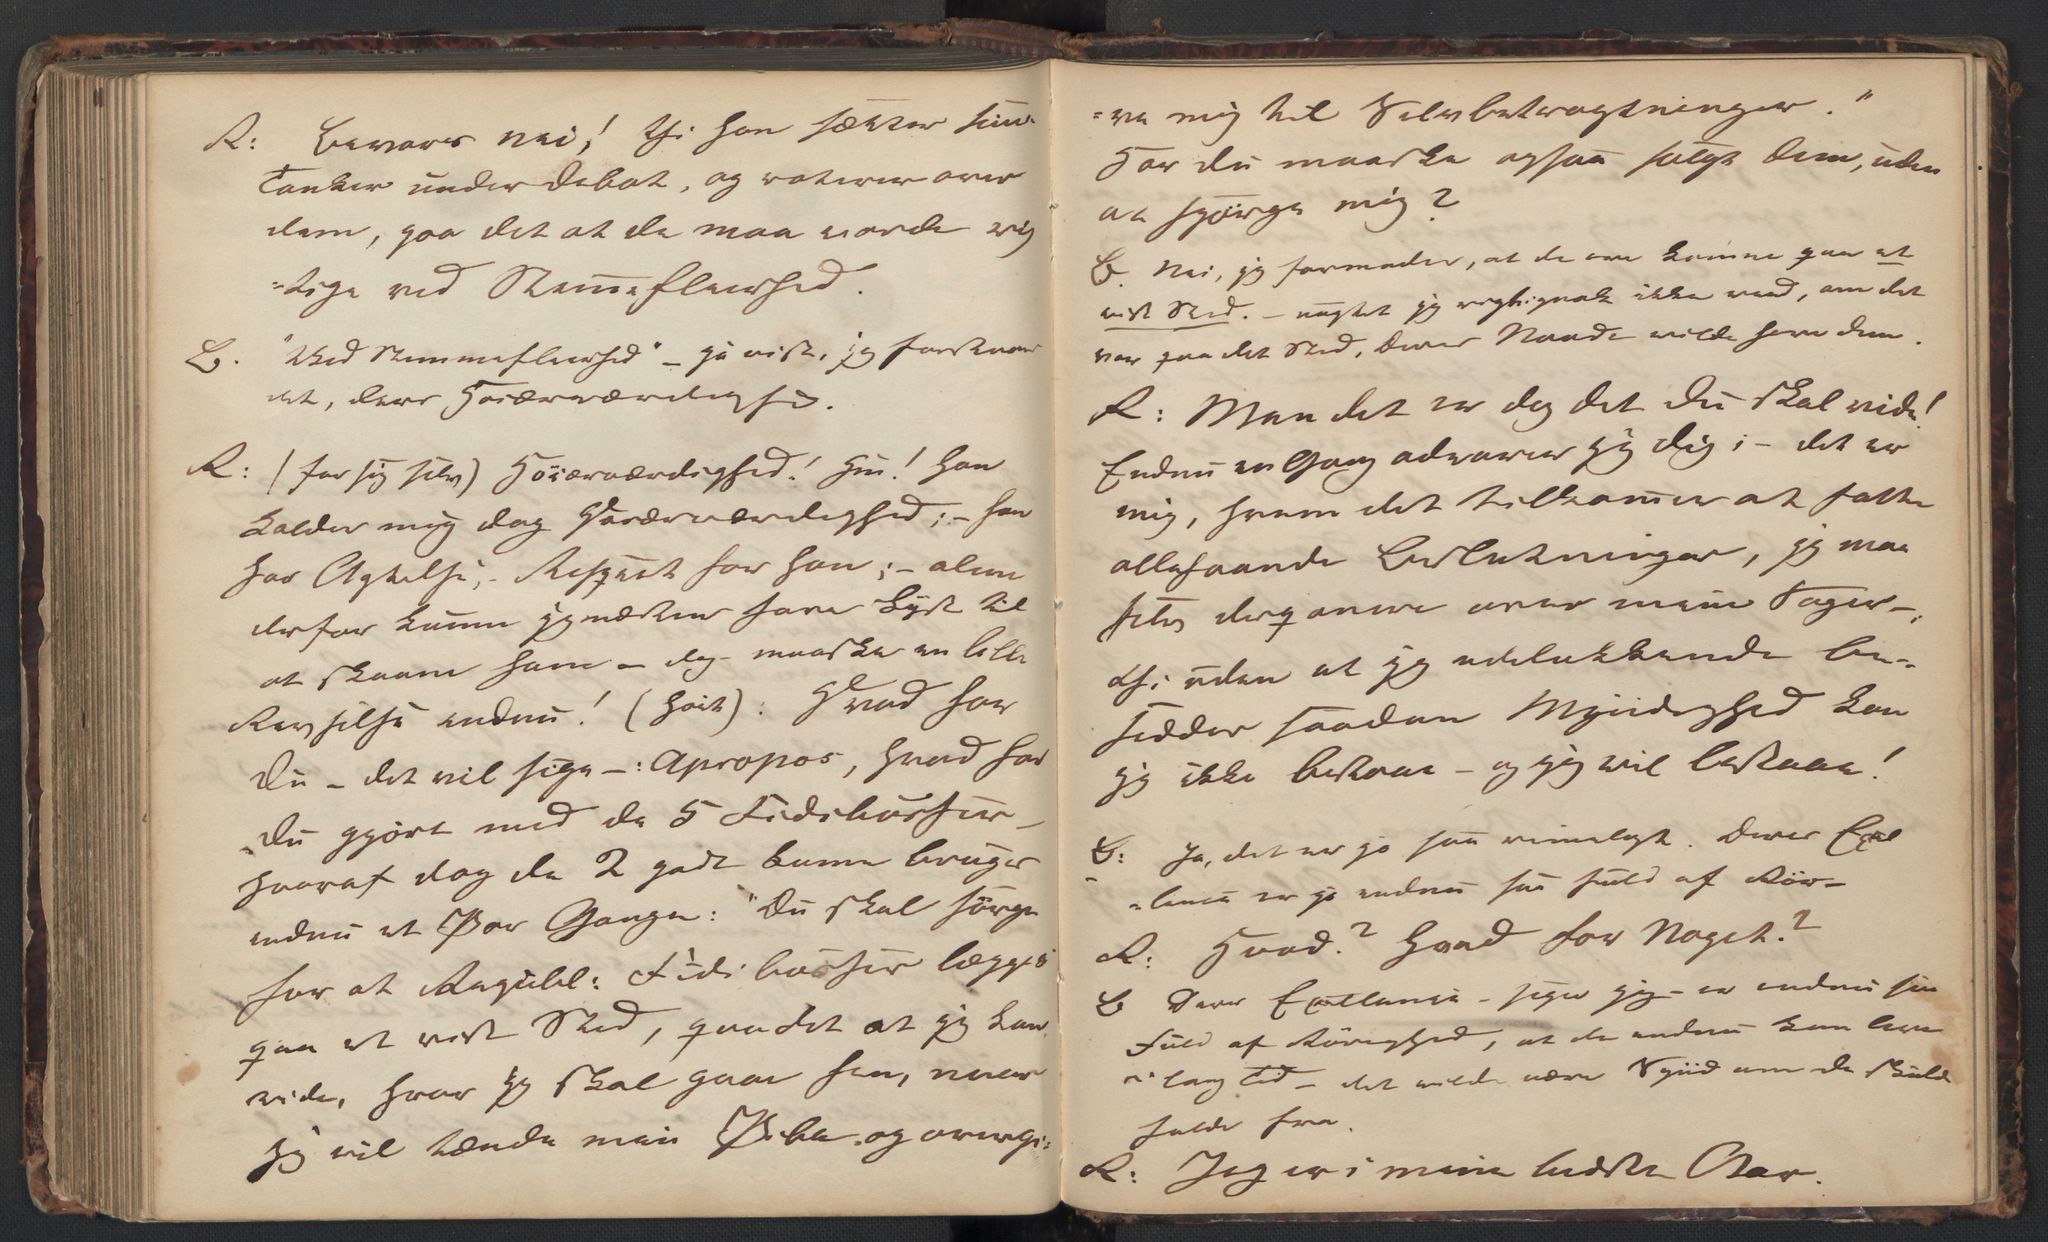 R: Bevares nei! thi han sætter sine
Tanker under Debat, og voterer over
dem, paa det at de maa vorde rig
=tige ved Stemmefleerhed.
B. "Ved Stemmefleerhed" – ja vist, jeg forstaaer
det, deres Høiærværdighed.
R: (for sig selv) Høiærværdighed! Hm! Han
kalder mig dog Høiærværdighed; – han
har Agtelse, – Respect har han; – alene
derfor kunne jeg næsten have Lyst til
at skaane ham – dog – maaskee en lille
Revselse endnu! (høit): Hvad har
Du – det vil sige –: Apropos, hvad har
Du gjort med de 5 Fidibusser –
hvoraf dog de 2 godt kunne bruges
endnu et Par Gange: "Du skal sørge
for at Regulel: Fidibusser lægges
paa et vist Sted, paa det at jeg kan
vide, hvor jeg skal gaae hen, naar
jeg vil tænde min Pibe og overgi=
=ve mig til Selvbetragtninger."
Har Du maaskee ogsaa solgt dem, uden
at spørge mig?
B. Nei, jeg formoder, at de ere komne paa et
vist Sted. – uagtet jeg rigtignok ikke veed, om det
var paa det Sted, Deres Naade vilde have dem.
R: Men det er dog det Du skal vide!
Endnu en Gang advarer jeg Dig; – det er
mig, hvem det tilkommer at fatte
alleslags Beslutninger, jeg maa
selv disponere over mine Sager –;
thi uden at jeg udelukkende be-
sidder saadan Myndighed kan
jeg ikke bestaae – og jeg vil bestaae!
B: Ja, det er jo saa rimeligt. Deres Excel
=lence er jo endnu saa fuld af Rør–
R: Hvad? Hvad for Noget?
B Deres Excellence – siger jeg – er endnu saa
fuld af Rørighed, at de endnu kan leve
i lang Tid – det vilde være Synd om De skulde
falde fra.
R: Jeg er i mine bedste Aar.